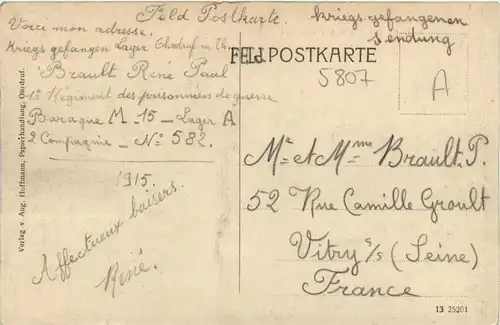 Feld Postkarte. kriegs-gefangenen
sendung
Voici mon adresse.
Kriegs gefangen Lager Ohrdruf in Th.
FELDPOSTKARTE
Brault René Paul
5807
A
1er Régiment des prisonniers de guerre
Baraque M - 15 - Lager A
2 Compagnie - No 582.
1915.
Affectueux baisers.
René.
Mr et Mme Brault. P.
52 Rue Camille Groult
Vitry s/s (Seine)
France
Verlag v. Aug. Hoffmann, Papierhandlung, Ohrdruf.
13 25201